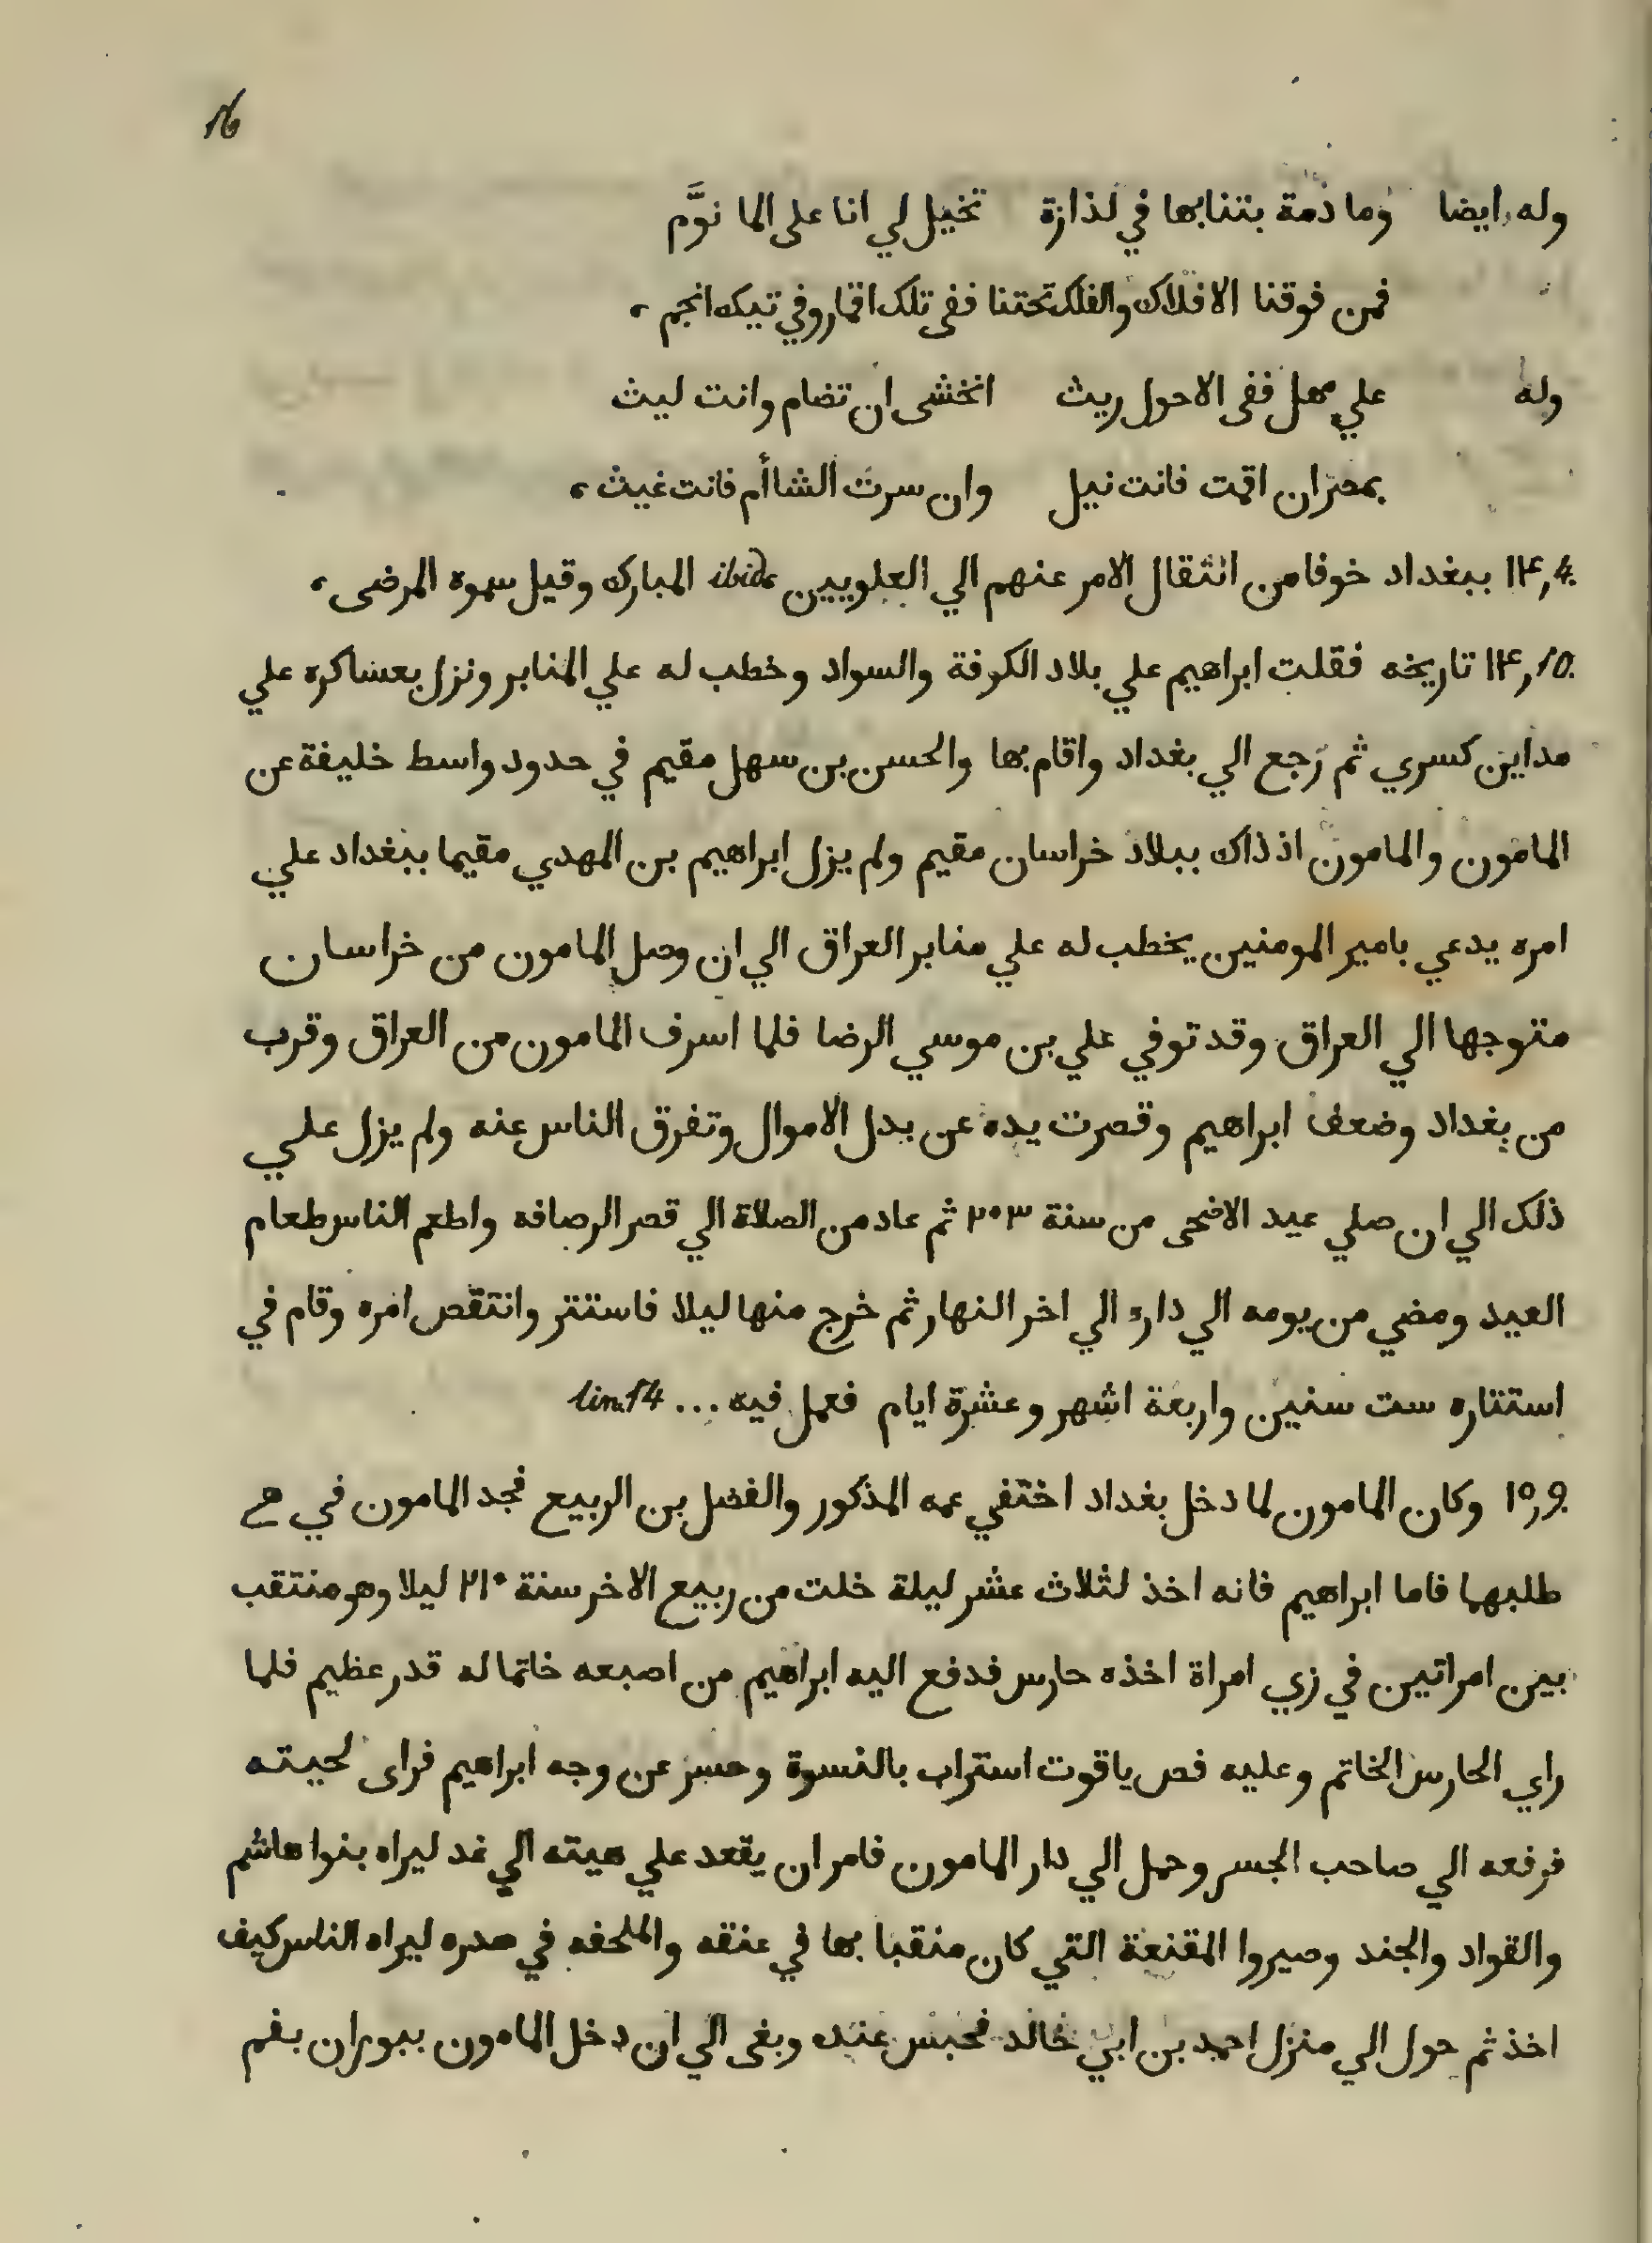 16
وله ايضا وما ذمة بتنابها في لذازة تخيل لي انا على الما نوَّم
فمن فوقنا الافلاك والفلك تحتنا ففى تلك اقمار وفي تيك انجم ،
وله علي مهل ففى الاحول ريث اتخشى ان تضام وانت ليث
بمصر ان اقمت فانت نيل وان سرت الشاأم فانت غيث ،
١٣,4. ببغداد خوفا من انتقال الامر عنهم الي العلويين ibid. المبارك وقيل سموه المرضى ،
١٣,10. تاريخه فقلت ابراهيم علي بلاد الكوفة والسواد وخطب له علي المنابر ونزل بعساكره علي
مداين كسري ثم رجع الي بغداد واقام بها والحسن بن سهل مقيم في حدود واسط خليفة عن
المامون والمامون اذذاك ببلاد خراسان مقيم ولم يزل ابراهيم بن المهدي مقيما ببغداد علي
امره يدعي بامير المومنين يخطب له علي منابر العراق الي ان وصل المامون من خراسان
متوجها الي العراق وقد توفي علي بن موسي الرضا فلما اسرف المامون من العراق وقرب
من بغداد وضعف ابراهيم وقصرت يده عن بدل الاموال وتفرق الناس عنه ولم يزل علي
ذلك الي ان صلي عيد الاضحى من سنة ٢٠٣ ثم عاد من الصلاة الي قصر الرصافه واطعم الناس طعام
العيد ومضي من يومه الي داره الي اخر النهار ثم خرج منها ليلا فاستتر وانتقص امره وقام في
استتاره ست سنين واربعة اشهر وعشرة ايام فعمل فيه ... lin.14
١٥,9. وكان المامون لما دخل بغداد اختفي عمه المذكور والفضل بن الربيع فجد المامون في
طلبهما فاما ابراهيم فانه اخذ لثلاث عشر ليلة خلت من ربيع الاخر سنة ٢١٠ ليلا وهو منتقب
بين امراتين في زي امراة اخذه حارس فدفع اليه ابراهيم من اصبعه خاتما له قدر عظيم فلما
راي الحارس الخاتم وعليه فص ياقوت استراب بالنسوة وحسر عن وجه ابراهيم فراى لحيته
فرفعه الي صاحب الجسر وحمل الي دار المامون فامر ان يقعد علي هيته الي غد ليراه بنوا هاشم
والقواد والجند وصيروا المقنعة التي كان منقبا بها في عنقه والملحفه في صدره ليراه الناس كيف
اخذ ثم حول الي منزل احمد بن ابي خالد فحبس عنده وبغى الي ان دخل المامون ببوران بفم